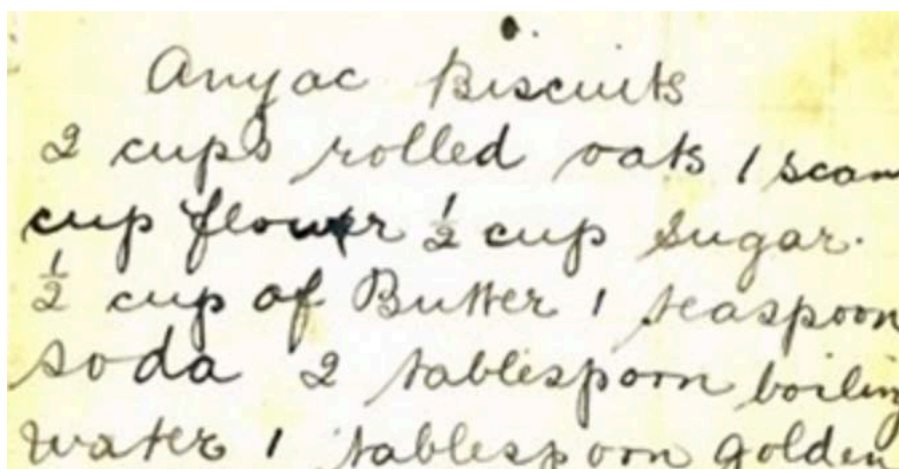 Anzac Biscuits
2 cups rolled oats 1 scan
cup flour ½ cup sugar.
½ cup of Butter 1 teaspoon
soda 2 tablespoon boiling
water 1 tablespoon golden